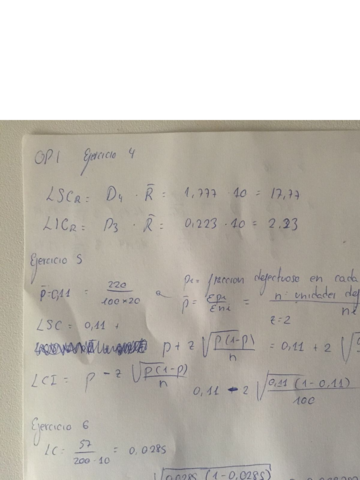 OPI Ejercicio 4
LSC_R = D4 · R̄ = 1,777 · 10 = 17,77
LIC_R = D3 · R̄ = 0,223 · 10 = 2.23
Ejercicio 5
p̄ = 0,11 = 220 / 100×20
fraccion defectuoso en cada
p̄ = = n · unidades
z = 2
LSC = 0,11 +
p + z √p(1-p) / n = 0,11 + 2 √
LCI = p - z √p(1-p) / n
0,11 - 2 √0,11 (1-0,11) / 100
Ejercicio 6
LC = 57 / 200·10 = 0,0285
√0,0285 (1-0,0285)